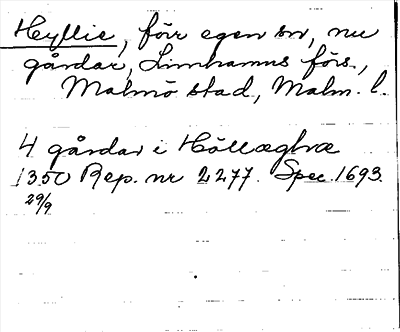 Hyllie, förr egen sn, nu
gårdar, Limhamns förs.,
Malmö stad, Malm. l.
4 gårdar i Höllæghræ
1350 Rep. nr 2277. Spec. 1693.
29/9